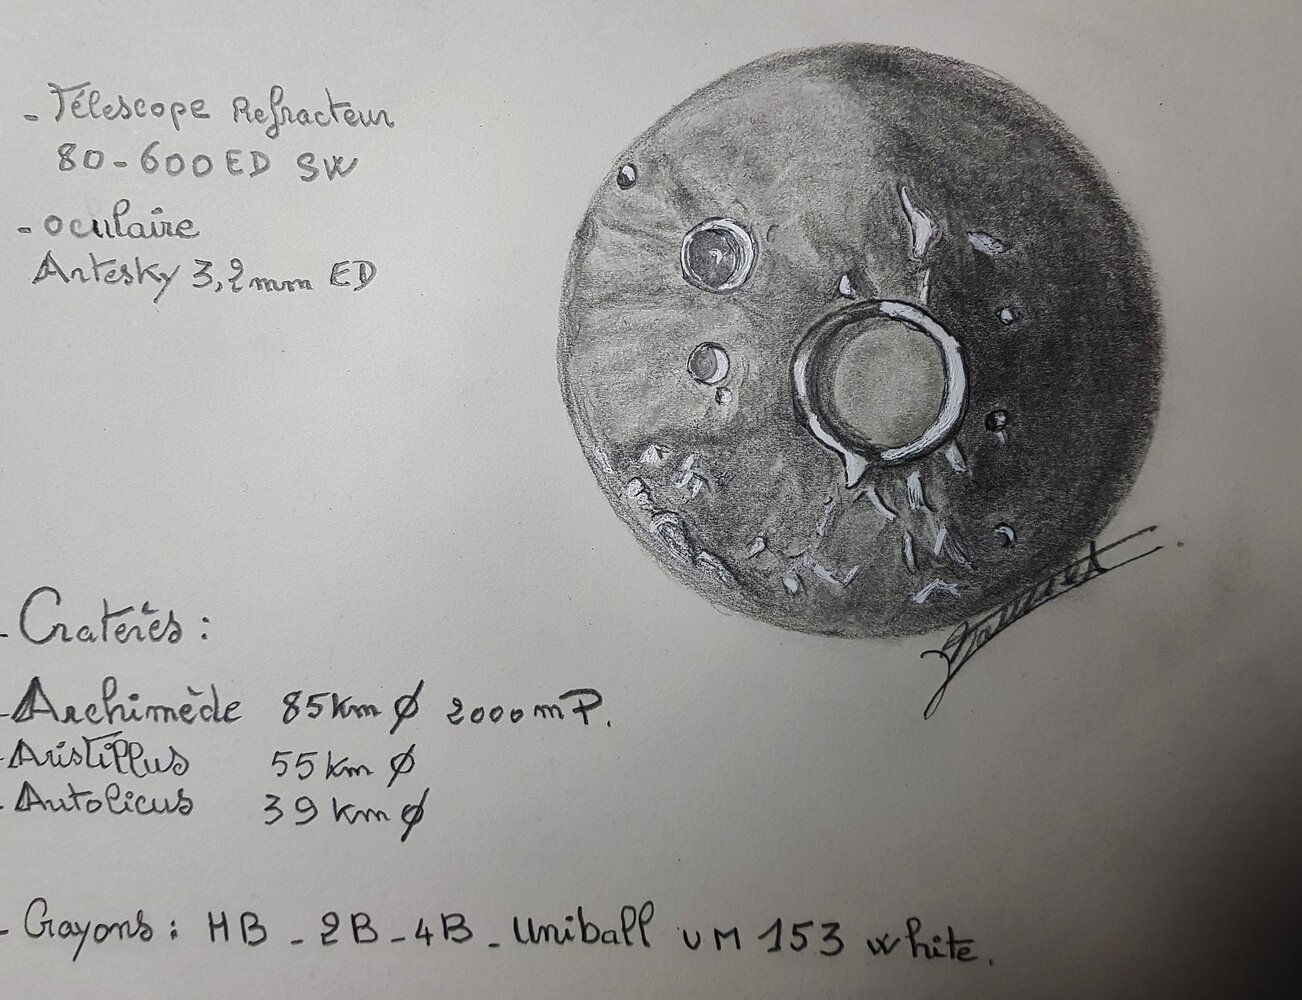 - Télescope Refracteur
80-600 ED SW
- oculaire
Artesky 3,2mm ED
- Cratères :
- Archimède 85km ∅ 2000m P.
- Aristillus 55 km ∅
- Autolicus 39 km ∅
- Crayons : HB - 2B - 4B - Uniball UM 153 white.